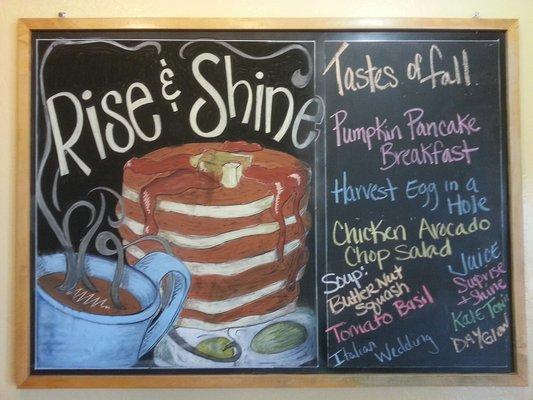 Rise & Shine
Tastes of fall
Pumpkin Pancake
Breakfast
Harvest Egg in a
Hole
Chicken Avocado
Chop Salad
Soup:
ButterNut
Squash
Tomato Basil
Italian Wedding
Juice
Surprise
+ Shine
Kale Tonic
DAYGlow